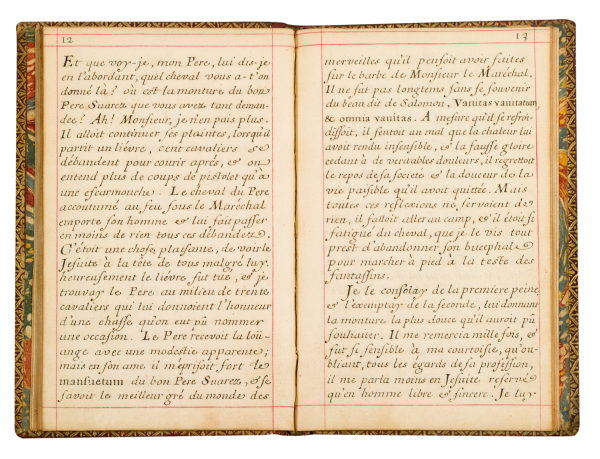 12
Et que voy-je, mon Pere, lui dis-je
en l'abordant, quel cheval vous a-t'on
donné là? où est la monture du bon
Pere Suarez que vous avez tant deman-
dée? Ah! Monsieur, je n'en puis plus.
Il alloit continuer ses plaintes, lorsqu'il
partit un liévre, cent cavaliers se
débandent pour courir aprés, & on
entend plus de coups de pistolet qu'à
une escarmouche. Le cheval du Pere
accoutumé au feu sous le Maréchal
emporte son homme & lui fait passer
en moins de rien tous ces débandez.
C'étoit une chose plaisante, de voir le
Jesuite à la tête de tous malgré luy.
heureusement le liévre fut tué, & je
trouvay le Pere au milieu de trente
cavaliers qui lui donnoient l'honneur
d'une chasse qu'on eut pû nommer
une occasion. Le Pere recevoit la loü-
ange avec une modestie apparente;
mais en son ame il méprisoit fort le
mansuetum du bon Pere Suarez, & se
savoit le meilleur gré du monde des
13
merveilles qu'il pensoit avoir faites
sur le barbe de Monsieur le Maréchal.
Il ne fut pas longtems sans se souvenir
du beau dit de Salomon, Vanitas vanitatum
& omnia vanitas. A mesure qu'il se refroi-
dissoit, il sentoit un mal que la chaleur lui
avoit rendu insensible, & la fausse gloire
cedant à de veritables douleurs, il regrettoit
le repos de sa societé & la douceur de la
vie paisible qu'il avoit quittée. Mais
toutes ces reflexions ne servoient de
rien, il falloit aller au camp, & il étoit si
fatigué du cheval, que je le vis tout
prest d'abandonner son bucephale
pour marcher à pied à la teste des
fantassins.
Je le consolay de la premiere peine
& l'exemptay de la seconde, lui donnant
la monture la plus douce qu'il auroit pû
souhaiter. Il me remercia mille fois, &
fut si sensible à ma courtoisie, qu'ou-
bliant, tous les égards de sa profession,
il me parla moins en Jesuite reservé
qu'en homme libre & sincere. Je luy